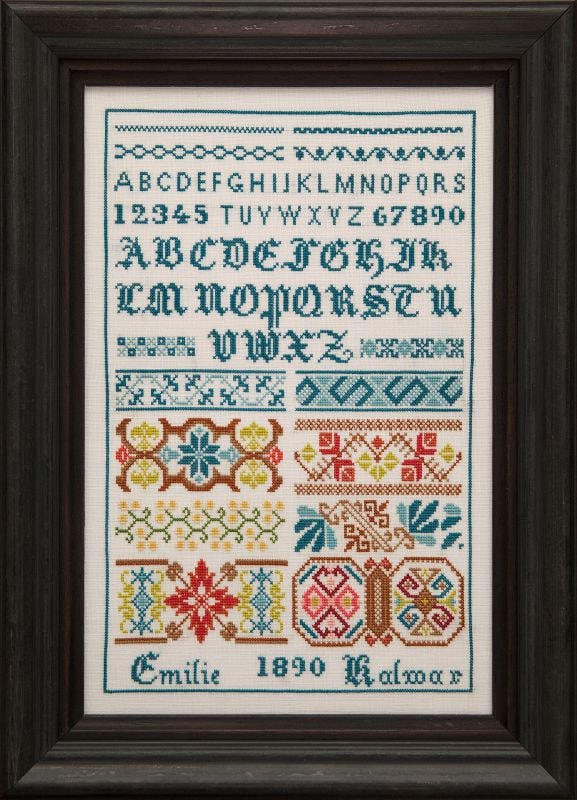 ABCDEFGHIJKLMNOPQRS
12345 TUVWXYZ 67890
ABCDEFGHIJK
LMNOPQRSTU
VWXZ
Emilie 1890 Kalwar